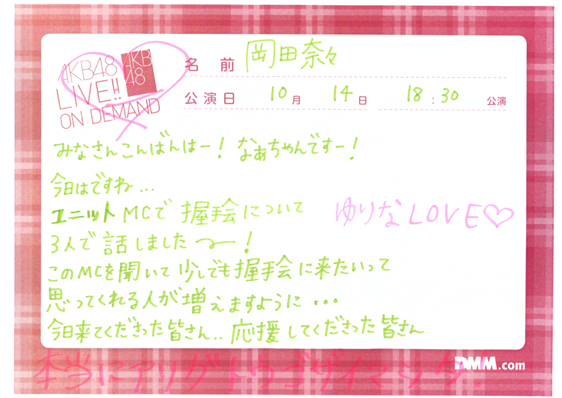 AKB48
LIVE!!
ON DEMAND
AKB
48
名前 岡田奈々
公演日 10月 14日 18:30 公演
みなさんこんばんはー! なぁちゃんですー!
今日はですね...
ユニットMCで 握手会について
3人で話しました〜!
ゆりなLOVE♡
このMCを聞いて少しでも握手会に来たいって
思ってくれる人が増えますように...
今日来てくださった皆さん.. 応援してくださった皆さん
本当にアリガトウゴザイマシタ
DMM.com